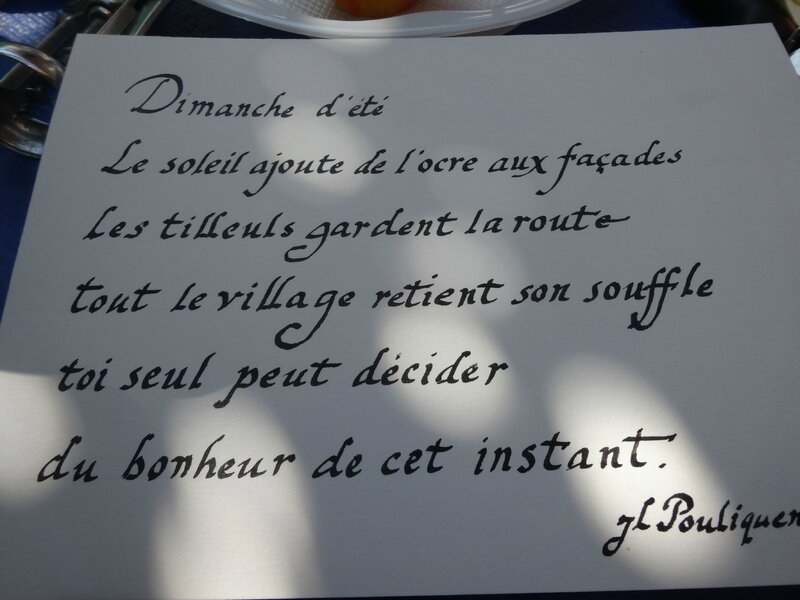 Dimanche d'été
Le soleil ajoute de l'ocre aux façades
Les tilleuls gardent la route
tout le village retient son souffle
toi seul peut décider
du bonheur de cet instant.
jl Pouliquen